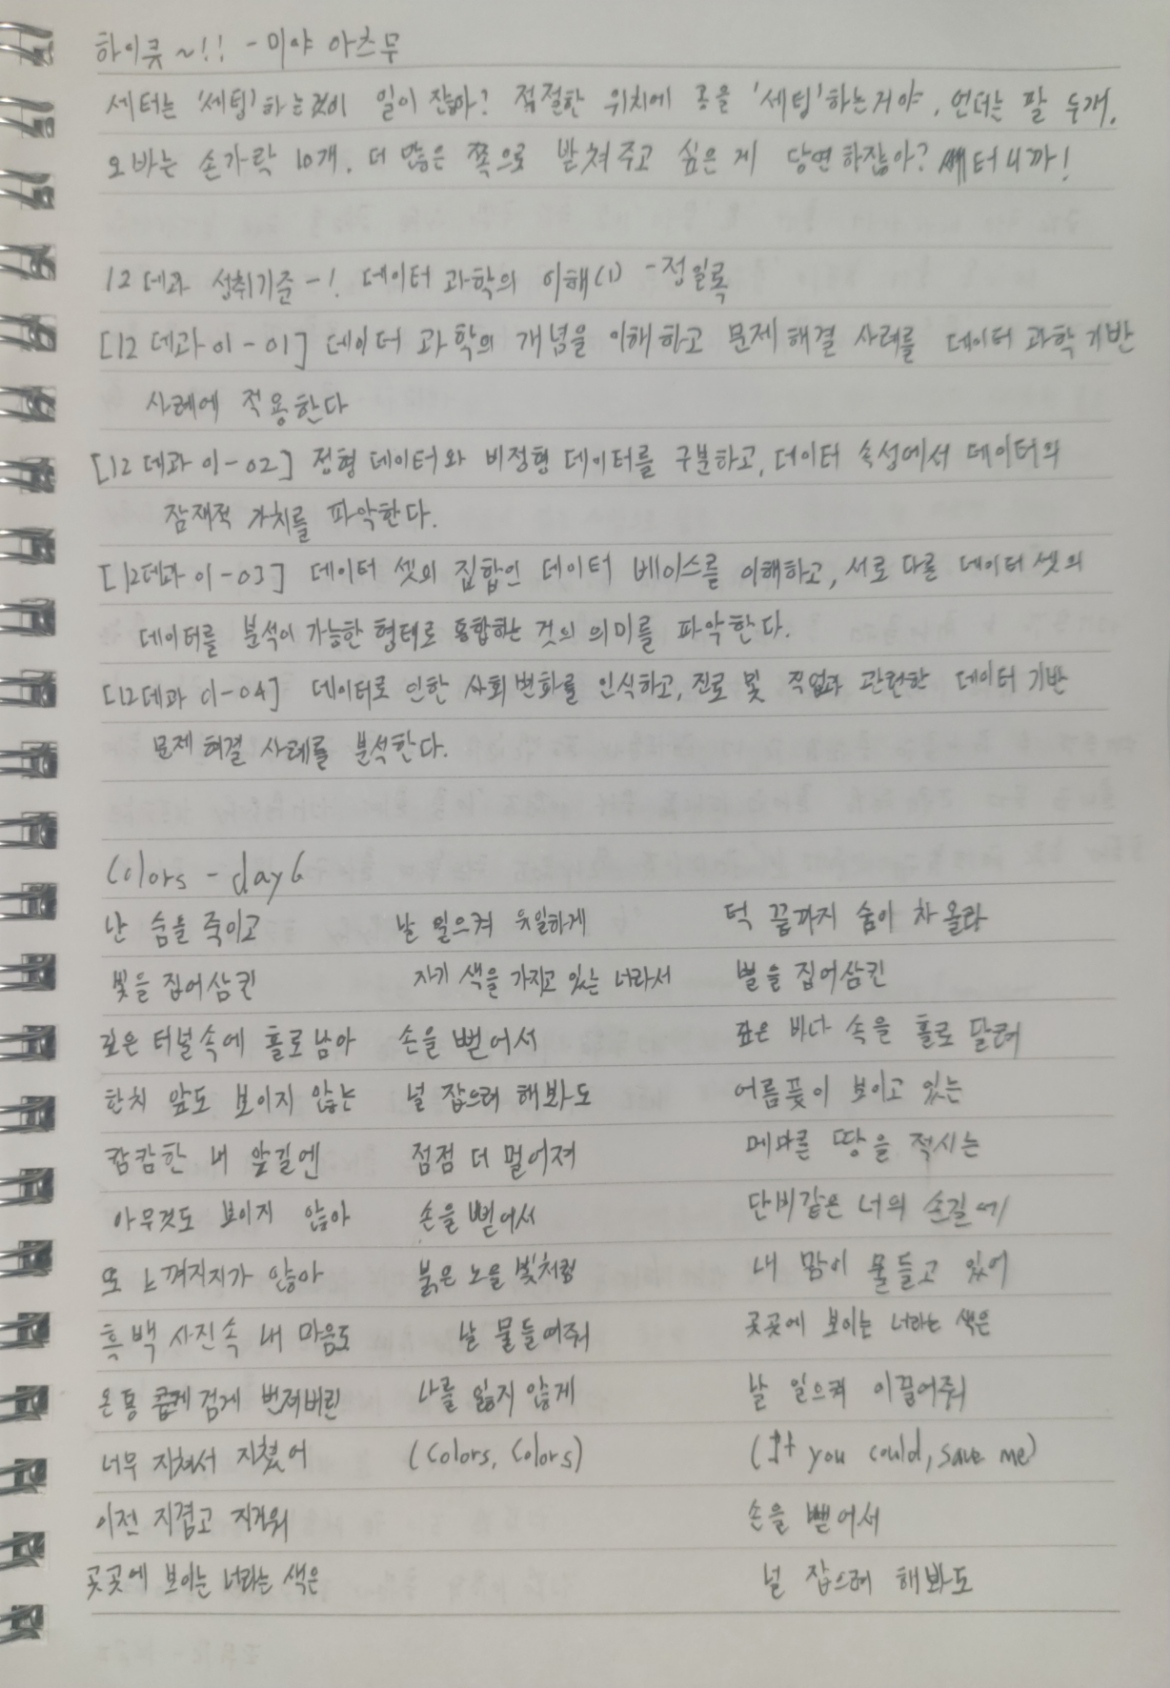 하이큐~!! - 미야 아츠무
세터는 '세팅'하는것이 일이잖아? 적절한 위치에 공을 '세팅'하는거야. 언더는 팔 두개,
오바는 손가락 10개. 더 많은 쪽으로 받쳐주고 싶은 게 당연하잖아? 쎄터니까!
12데과 성취기준-! 데이터 과학의 이해(1) - 정일록
[12데과01-01] 데이터 과학의 개념을 이해하고 문제해결 사례를 데이터 과학 기반
사례에 적용한다
[12데과01-02] 정형 데이터와 비정형 데이터를 구분하고, 데이터 속성에서 데이터의
잠재적 가치를 파악한다.
[12데과01-03] 데이터 셋의 집합인 데이터 베이스를 이해하고, 서로 다른 데이터 셋의
데이터를 분석이 가능한 형태로 통합하는 것의 의미를 파악한다.
[12데과01-04] 데이터로 인한 사회변화를 인식하고, 진로 및 직업과 관련한 데이터 기반
문제 해결 사례를 분석한다.
Colors - day6
난 숨을 죽이고
빛을 집어삼킨
깊은 터널속에 홀로남아
한치 앞도 보이지 않는
캄캄한 내 앞길엔
아무것도 보이지 않아
또 느껴지지가 않아
흑백사진속 내 마음도
온통 검게 번져버린
너무 지쳐서 지쳤어
이젠 지겹고 지겨워
곳곳에 보이는 너라는 색은
날 일으켜 유일하게
자기 색을 가지고 있는 너라서
손을 뻗어서
널 잡으려 해봐도
점점 더 멀어져
손을 뻗어서
붉은 노을 빛처럼
날 물들여줘
나를 잃지 않게
(Colors, Colors)
턱 끝까지 숨이 차올라
별을 집어삼킨
깊은 바다 속을 홀로 달려
어름풋이 보이고 있는
메마른 땅을 적시는
단비같은 너의 손길에
내 맘이 물들고 있어
곳곳에 보이는 너라는 색은
날 일으켜 이끌어줘
(If you could, save me)
손을 뻗어서
널 잡으려 해봐도